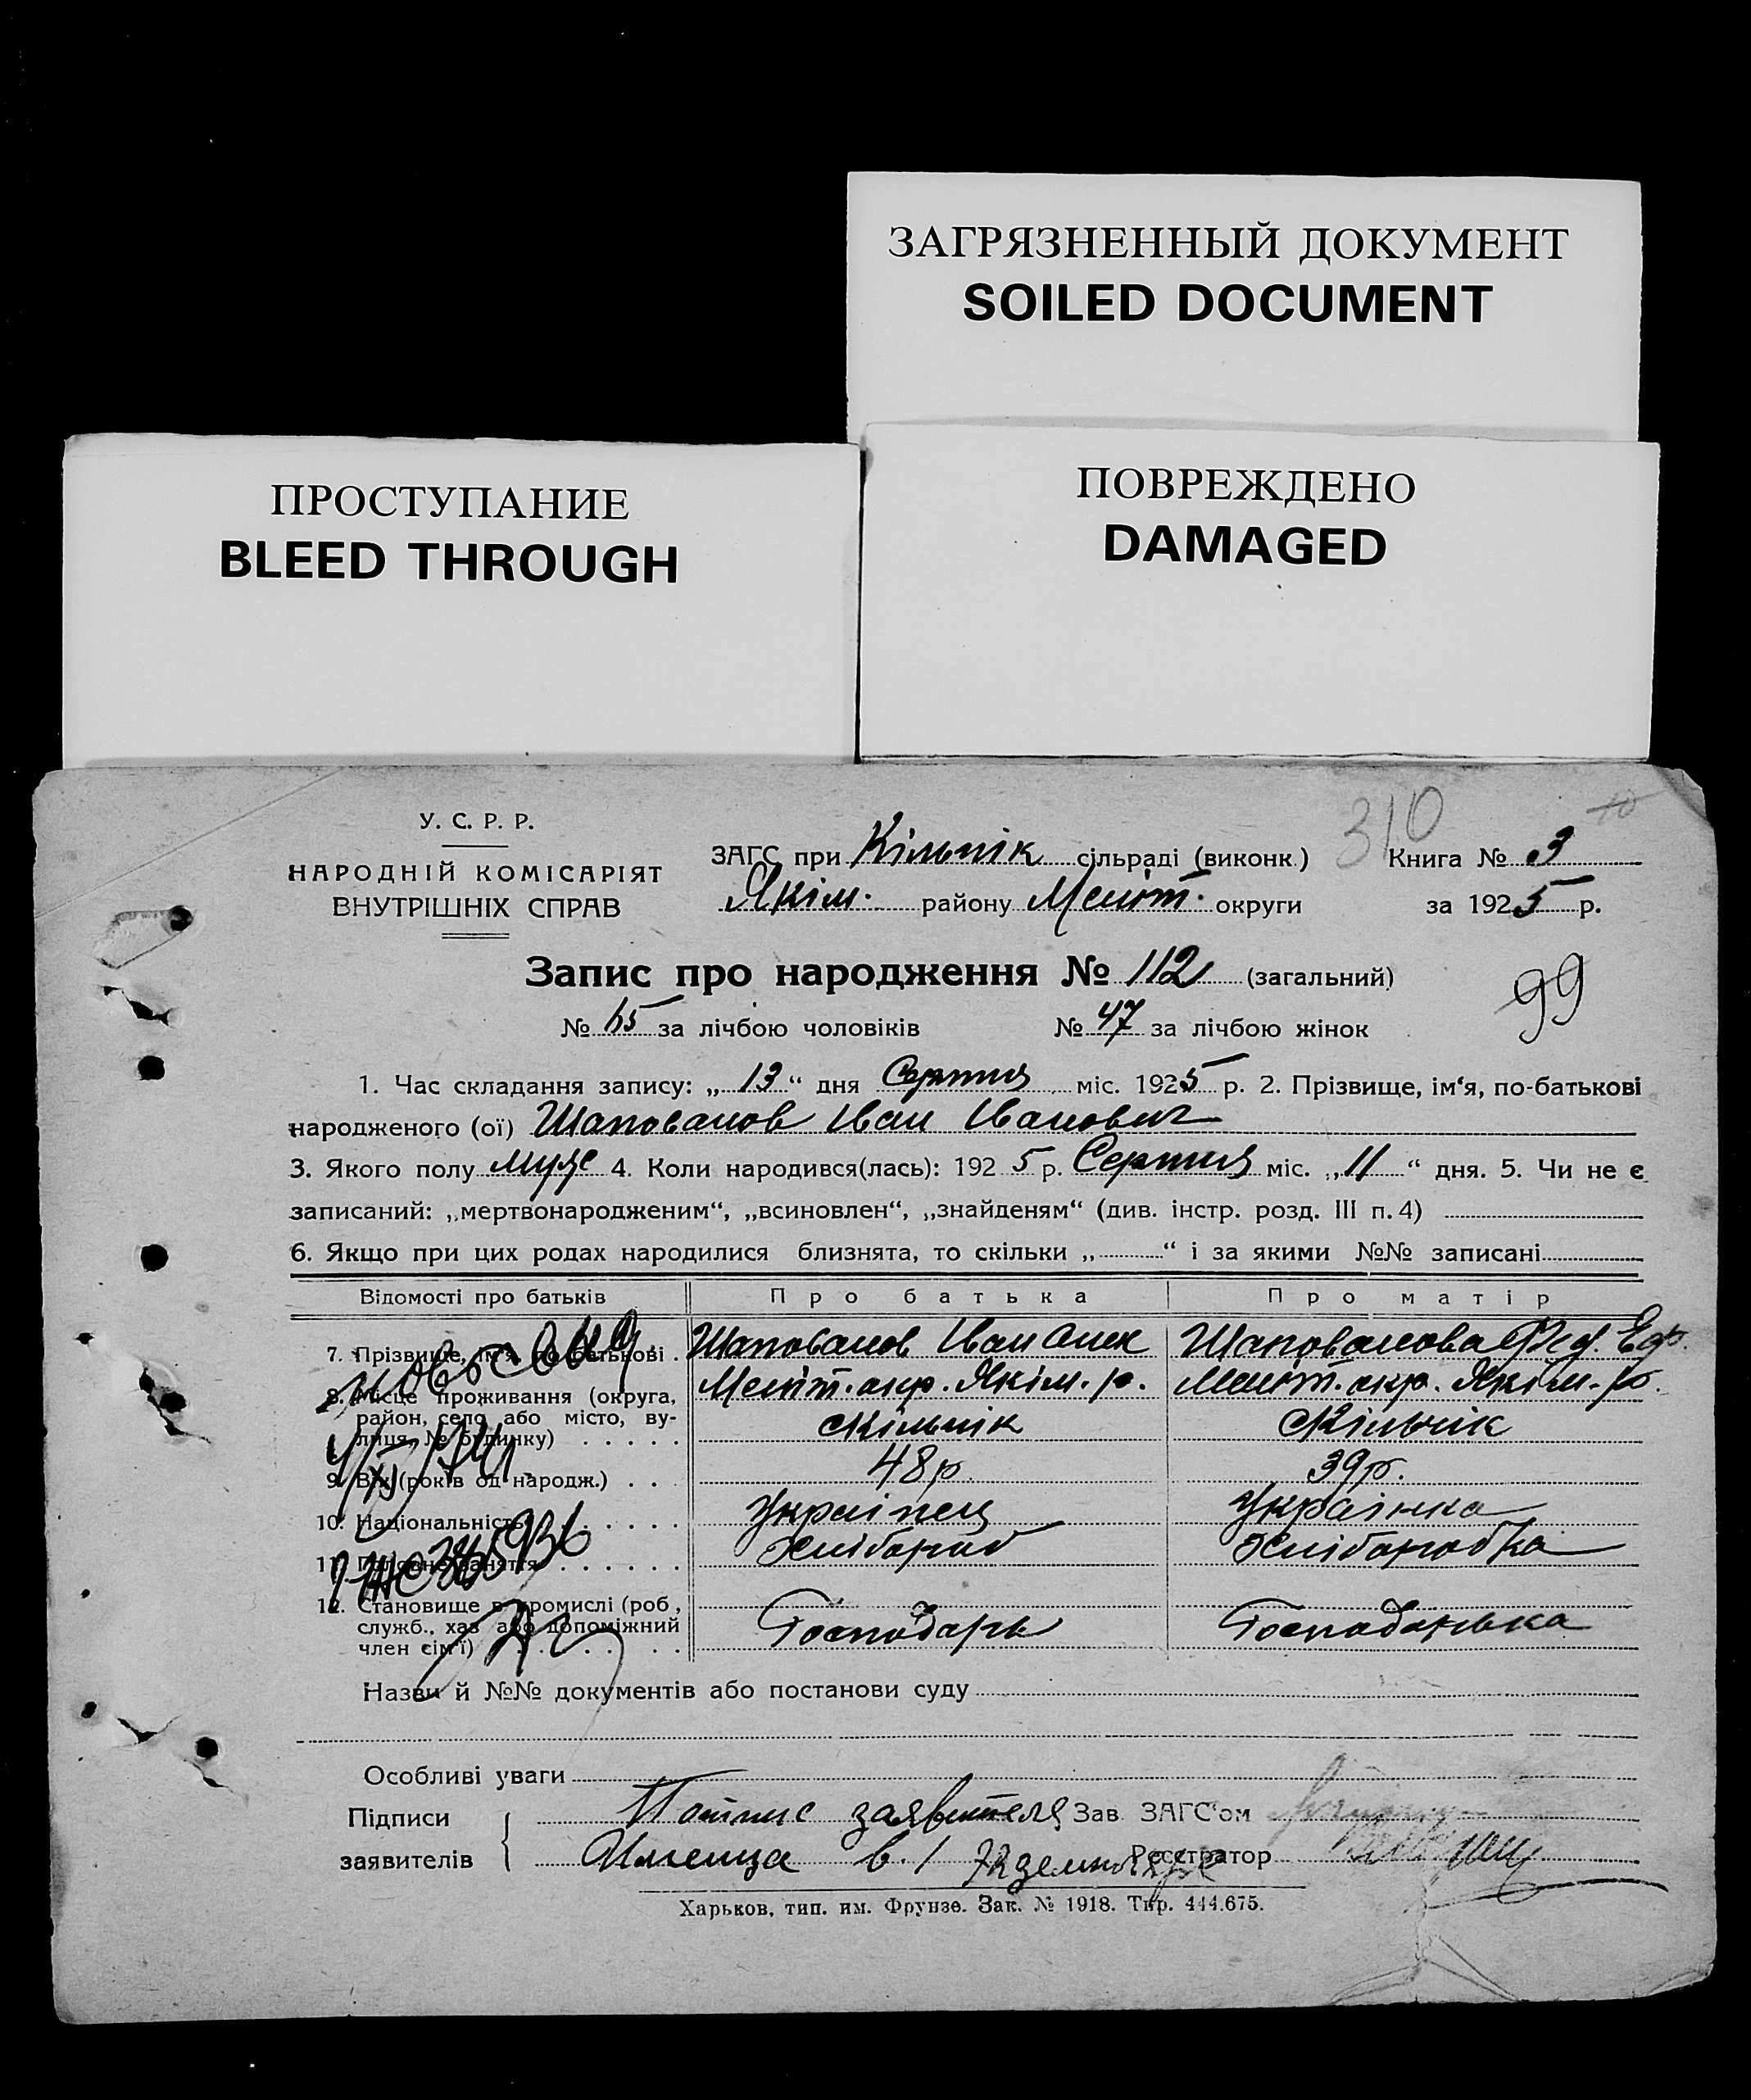 ЗАГРЯЗНЕННЫЙ ДОКУМЕНТ
SOILED DOCUMENT
ПРОСТУПАНИЕ
BLEED THROUGH
ПОВРЕЖДЕНО
DAMAGED
310
У. С. Р. Р.
НАРОДНІЙ КОМІСАРІЯТ
ВНУТРІШНІХ СПРАВ
ЗАГС при сільраді (виконк.) Книга № 3
Якім. району Меліт. округи за 1925 р.
Запис про народження № 112 (загальний)
99
№ 65 за лічбою чоловіків № 47 за лічбою жінок
1. Час складання запису: „13“ дня Серпня міс. 1925 р. 2. Прізвище, ім‘я, по-батькові
народженого (ої) Шаповалов Іван Іванович
3. Якого полу муж 4. Коли народився(лась): 1925 р. Серпня міс. „11“ дня. 5. Чи не є
записаний: „мертвонародженим“, „всиновлен“, „знайденям“ (див. інстр. розд. III п. 4)
6. Якщо при цих родах народилися близнята, то скільки „ “ і за якими №№ записані
Відомості про батьків Про батька Про матір
7. Прізвище, ім‘я, по батькові Шаповалов Іван Олек Шаповалова Фед. Еф.
8. Місце проживання (округа, Меліт. окр. Якім. р. Меліт. окр. Якім. р.
район, село або місто, ву-
лиця, № будинку)
9. Вік (років од народж.) 48 р. 39 р.
10. Національність Українец Українка
11. Головне заняття Хлібороб Хліборобка
12. Становище в промислі (роб.,
служб., хаз. або допоміжний Господарь Господарька
член сім‘ї)
Назви й №№ документів або постанови суду
Особливі уваги
Підписи заявителя Зав. ЗАГС‘ом
заявителів Реєстратор
Харьков, тип. им. Фрунзе. Зак. № 1918. Тир. 444.675.